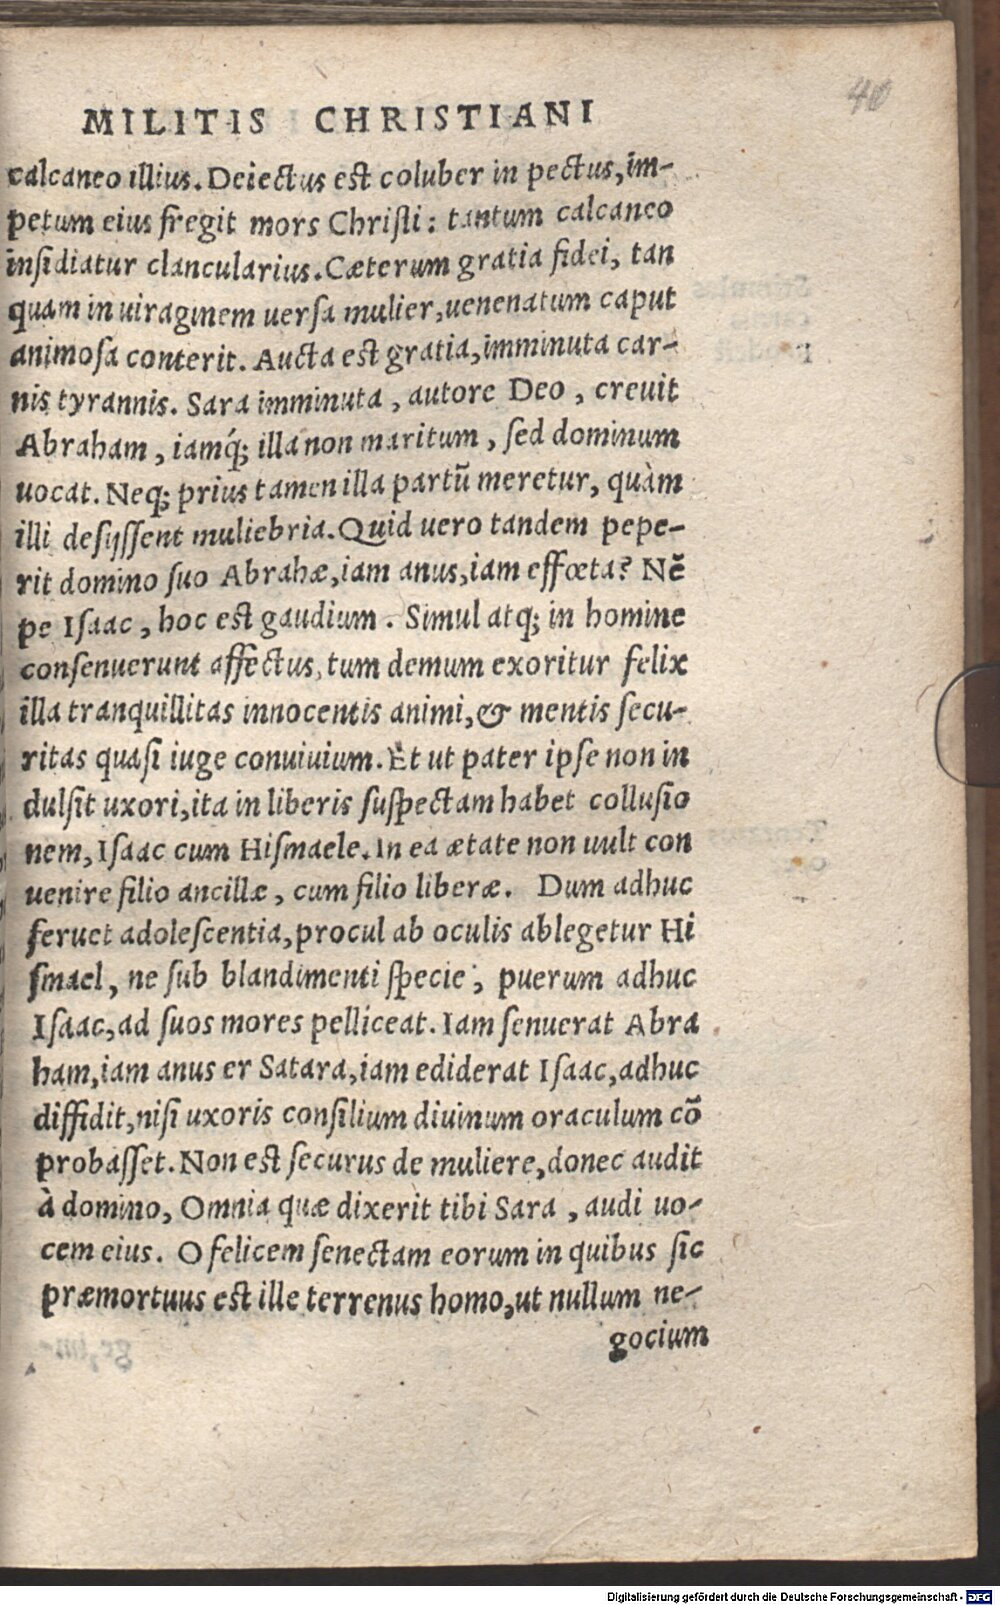 40
MILITIS CHRISTIANI
calcaneo illius. Deiectus est coluber in pectus, im-
petum eius fregit mors Christi: tantum calcaneo
insidiatur clancularius. Cæterum gratia fidei, tan
quam in uiraginem uersa mulier, uenenatum caput
animosa conterit. Aucta est gratia, imminuta car-
nis tyrannis. Sara imminuta, autore Deo, creuit
Abraham, iamq́; illa non maritum, sed dominum
uocat. Neq; prius tamen illa partū meretur, quàm
illi desijssent muliebria. Quid uero tandem pepe-
rit domino suo Abrahæ, iam anus, iam effœta? Nē
pe Isaac, hoc est gaudium. Simul atq; in homine
consenuerunt affectus, tum demum exoritur felix
illa tranquillitas innocentis animi, & mentis secu-
ritas quasi iuge conuiuium. Et ut pater ipse non in
dulsit uxori, ita in liberis suspectam habet collusio
nem, Isaac cum Hismaele. In ea ætate non uult con
uenire filio ancillæ, cum filio liberæ. Dum adhuc
feruet adolescentia, procul ab oculis ablegetur Hi
smael, ne sub blandimenti specie, puerum adhuc
Isaac, ad suos mores pelliceat. Iam senuerat Abra
ham, iam anus er Satara, iam ediderat Isaac, adhuc
diffidit, nisi uxoris consilium diuinum oraculum cō
probasset. Non est securus de muliere, donec audit
à domino, Omnia quæ dixerit tibi Sara, audi uo-
cem eius. O felicem senectam eorum in quibus sic
præmortuus est ille terrenus homo, ut nullum ne-
gocium
Digitalisierung gefördert durch die Deutsche Forschungsgemeinschaft - DFG